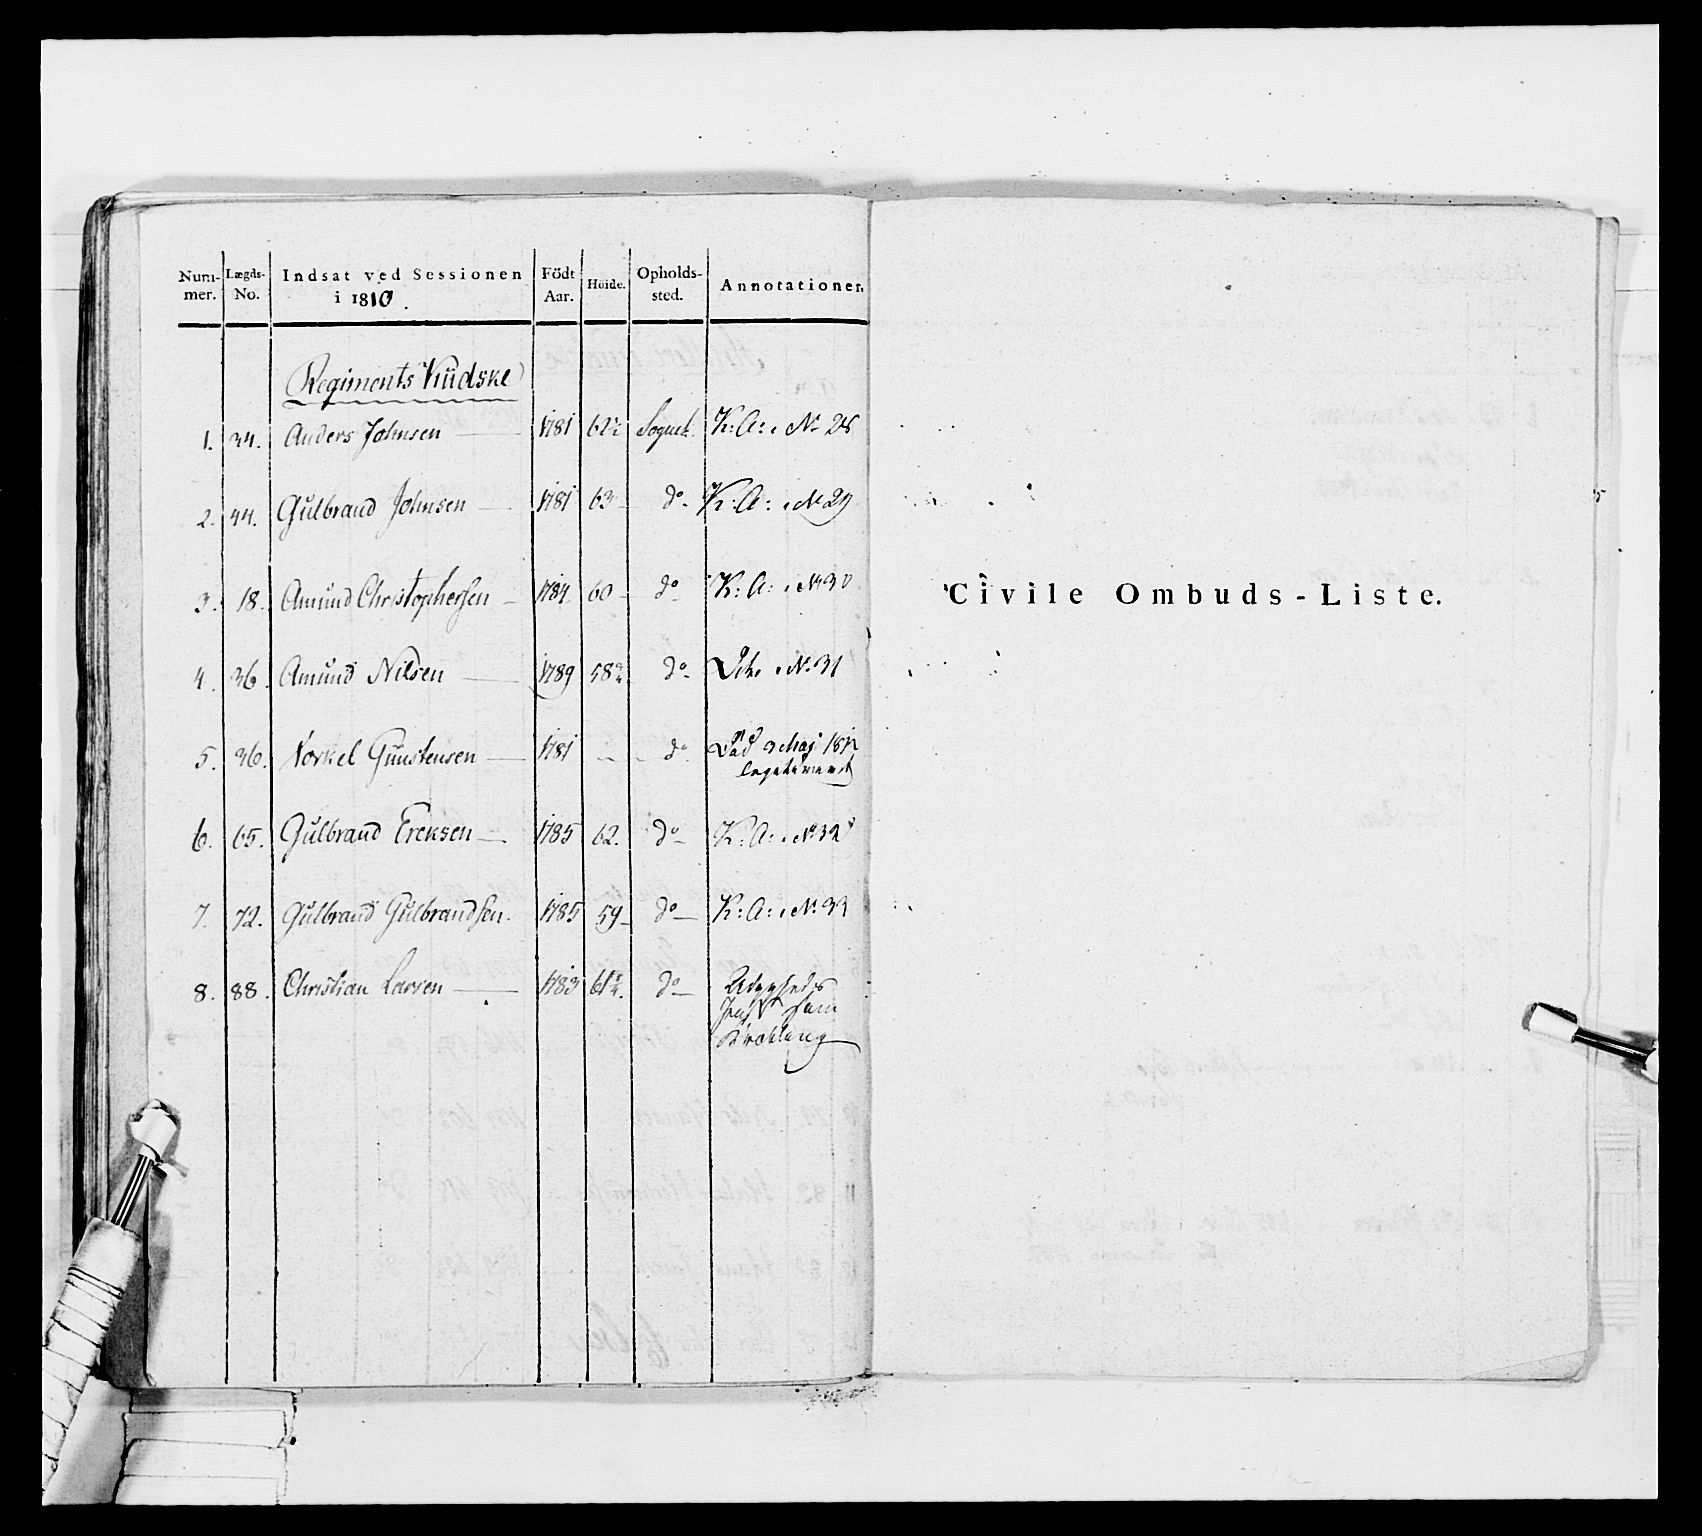 Num- Lægds- Indsat ved Sessionen Födt Höide. Opholds- Annotationer.
mer. No. i 1810. Aar. sted.
Regiments Kudske
1. 34. Anders Johnsen 1781 62½ Sognet. K: A: No 28
2. 44. Gulbrand Johnsen 1781 63 do K: A: No 29
3. 18. Amund Christophersen 1784 60 do K: A: No 30
4. 36. Amund Nilsen 1789 58¾ do No 31
5. 36. Torkel Gunstensen 1781 do Död 3 Maj
6. 65. Gulbrand Ereksen 1785 62. do K: A: No 32
7. 72. Gulbrand Gulbrandsen. 1785 59 do K: A: No 33
8. 88. Christian Larsen 1783 do
Civile Ombuds-Liste.